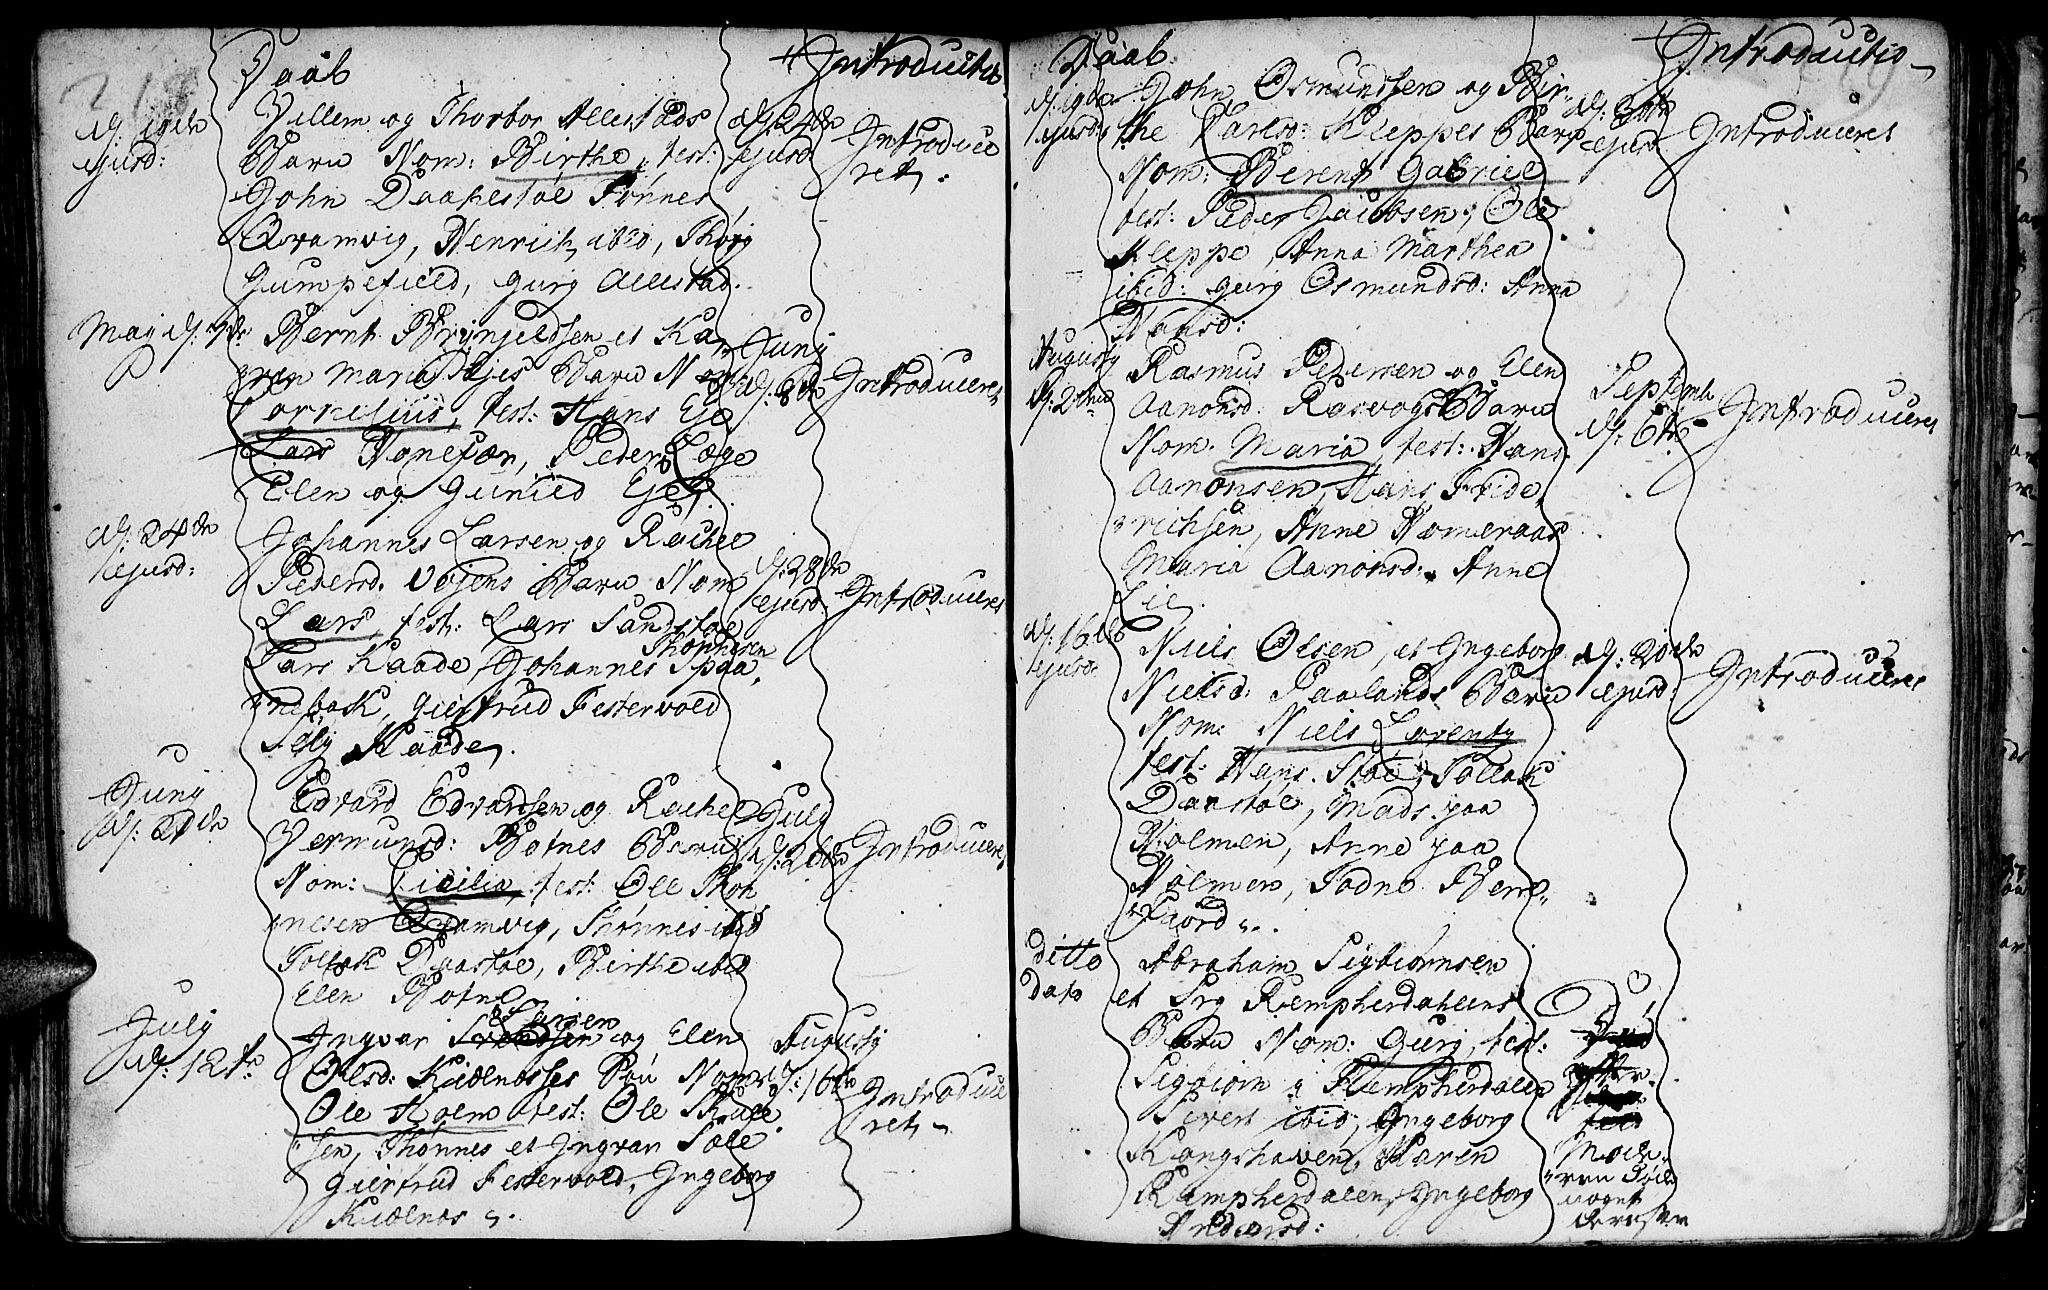 218
Daab
Introductio
d: 19de
ejusd:
Villem og Thorbor Allestads
Barn Nom: Birthe, test:
John Daakestøe Tønnes
Qvamvig, Henrich ibid, Thorg
Gumpefield, Gurg Allestad.
d: 24de
ejusd
Introduce
ret.
May d: 7de
Bernt Brynjeldsen et Ka,
ren Maria Ejes Barn Nom
Cornelius, test: Hans Eje
Lars Hanefær, Peder Læge
Elen og Gunild Eje.
Juny
d: 8de
Introduceret
d: 24de
ejusd:
Johannes Larsen og Rachel
Pedersd. Vejens Barn Nom
Lars, test: Lars Sandstøe
Thønnesen
Tars Kaade, Johannes Spaa,
nebæk, Giertrud Festervold
Sely Kaade.
d: 28de
ejusd
Introduceret
Juny
d: 21de
Edvard Edvardsen og Rachel
Vermunsd: Botnes Barn
Nom: Cicilia, test: Ole Thøn
nesen Qvamvig, Thønnes ibid
Tollak Daastøe, Birthe ibid
Elen Botne
July
d: 26de
Introduceret
July
d: 12te
Larsen
Ingvar Svendsen og Elen
Olsd: Kiælnæsses Søn Nom
Ole Holm test: Ole
sen, Thønnes et Ingvar Sole
Giertrud Festervold, Ingeborg
Kiælnæs.
Augusty
d: 16de
Introduce
ret
Daab.
Introductio
d: 19de
ejusd:
John Osmundsen og Bir,
the Carlsd: Kleppes Barn
Nom: Berent Gabriel
test: Peder Jacobsen, Ole
Kleppe, Anna Marthea
ibid: Gurg Osmundsd: Anna
Hansd:
d: 30te
ejusd
Introduceret
Augusty
d: 2den
Rasmus Pedersen og Elen
Aanonsd: Rasvogs Barn
Nom. Maria, test: Hans
Aanonsen, Hans Fride,
richsen, Anne Homeraas
Maria Aanonsd: Anne
Lie.
Septembr
d: 6te
Introduceret
d: 16de
ejusd:
Niels Olsen, et Ingeborg
Nielsd: Paalands Barn
Nom: Niels Lorenty
test: Hans Støe, Tollak
Daastøe, Mads paa
Holmen, Anne paa
Holmen, Todne Berre,
fiord.
d: 20de
ejusd:
Introduceret
ditto
dato
Abraham Sigbiørnsen
et Srg Rempherdahlens
Barn Nom: Gurg, test:
Sigbiørn i Rempherdalen
Sivert ibid, Ingeborg
Kongshaven, Karen
Rempherdalen, Ingeborg
Andersd:
Mode,
ren Døde
noget
derefter